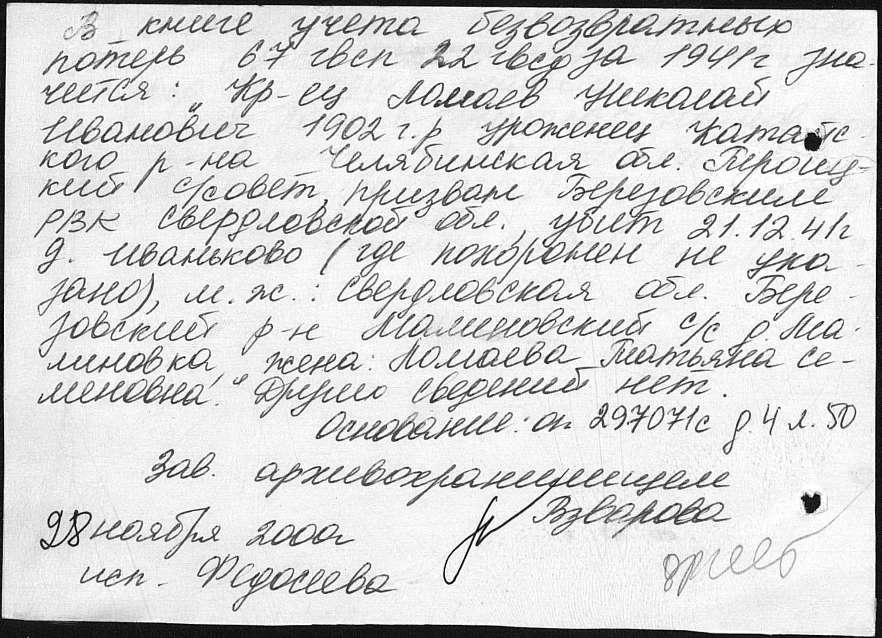 В книге учета безвозвратных
потерь 67 гвсп 22 гвсд за 1941г зна-
чится: „Кр-ец Ломаев Николай
Иванович 1902 г.р уроженец Катайс-
кого р-на Челябинская обл. Троиц-
кий с/совет, призван Березовским
РВК Свердловской обл., убит 21.12.41г
д. Иваньково (где похоронен не ука-
зано), м.ж.: Свердловская обл. Бере-
зовский р-н Малиновский с/с д. Ма-
линовка, жена: Ломаева Татьяна Се-
меновна." Других сведений нет.
Основание: оп 297071с д.4 л.50
Зав. архивохранилищем
Взварова
28 ноября 2000г
исп. Федосеева